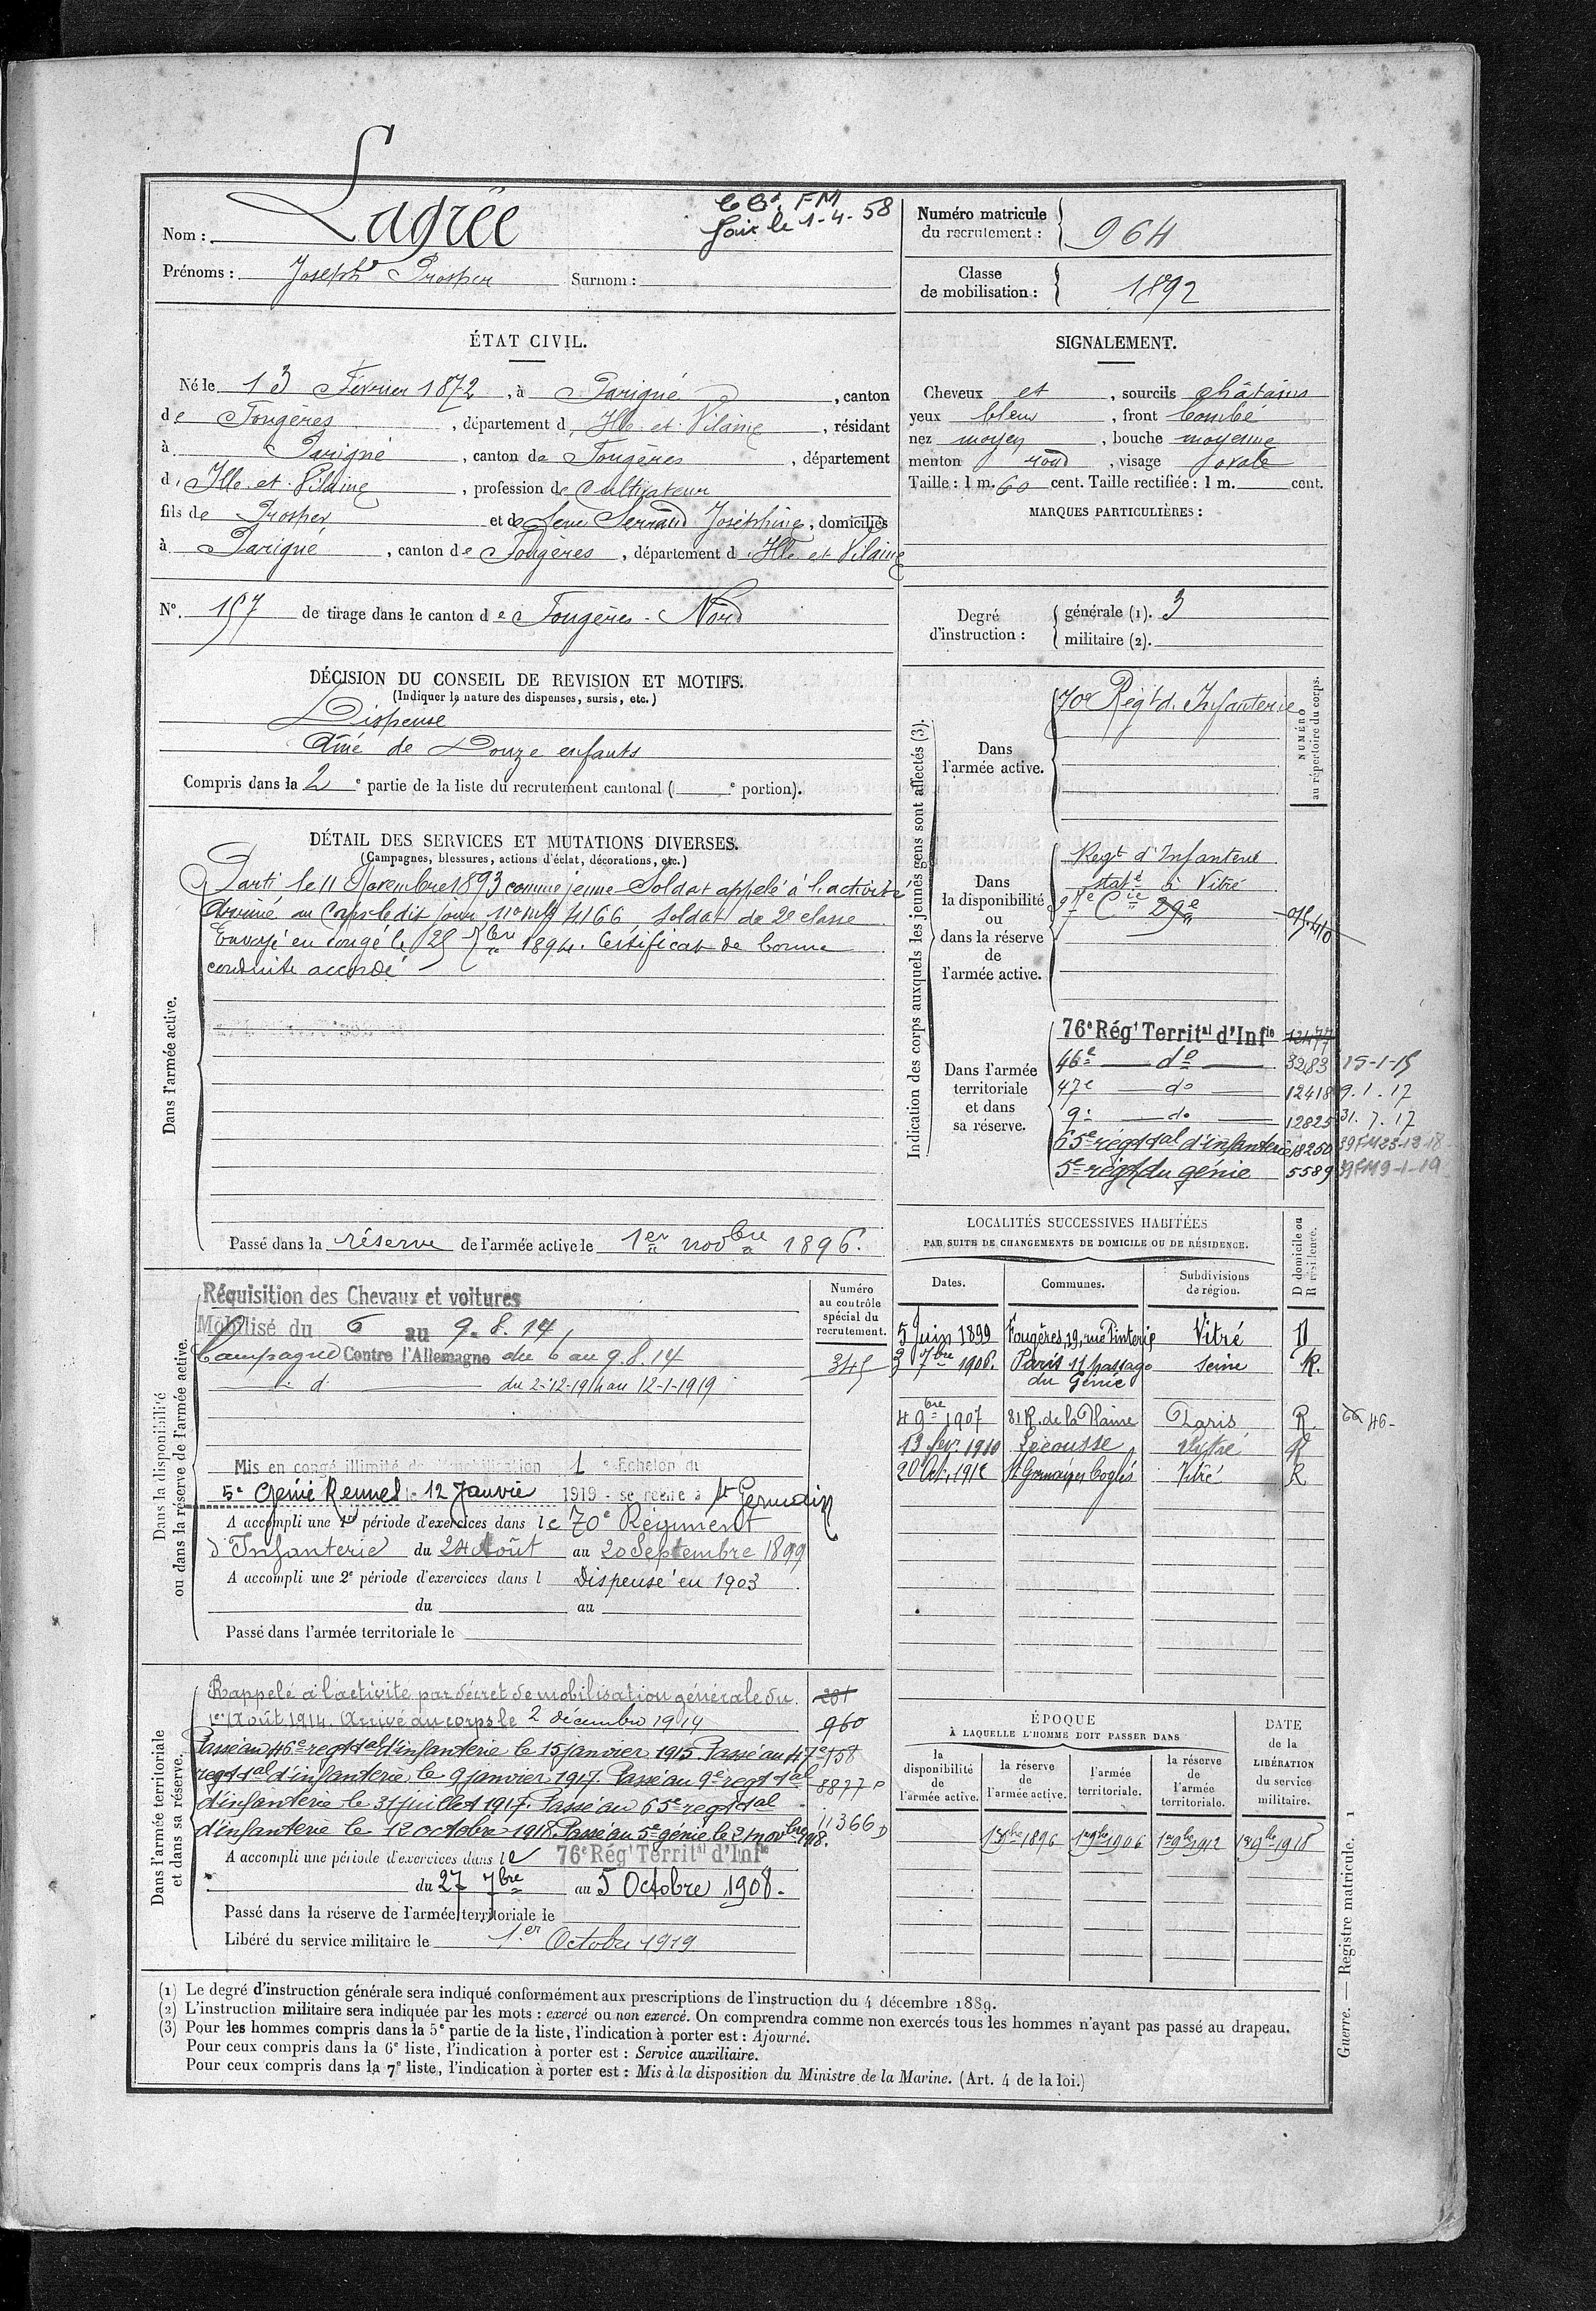 Lagrée
Nom :
C Ct. FM
faix le 1-4-58
Prénoms : Joseph Prosper Surnom :
Numéro matricule
du recrutement : 964
Classe
de mobilisation : 1892
ÉTAT CIVIL.
Né le 13 Février 1872, à Parigné, canton
de Fougères, département d. Ille et Vilaine, résidant
à Parigné, canton de Fougères, département
d. Ille et Vilaine, profession de Cultivateur
fils de Prosper et de feue Serrand Joséphine, domiciliés
à Parigné, canton de Fougères, département d. Ille et Vilaine
N°. 157 de tirage dans le canton de Fougères-Nord
SIGNALEMENT.
Cheveux et, sourcils châtains
yeux bleu, front bombé
nez moyen, bouche moyenne
menton rond, visage ovale
Taille : 1 m. 60 cent. Taille rectifiée : 1 m. cent.
MARQUES PARTICULIÈRES :
Degré
d'instruction :
générale (1). 3
militaire (2).
DÉCISION DU CONSEIL DE REVISION ET MOTIFS.
(Indiquer la nature des dispenses, sursis, etc.)
Dispensé
Aîné de Douze enfants
Compris dans la 2e partie de la liste du recrutement cantonal ( e portion).
DÉTAIL DES SERVICES ET MUTATIONS DIVERSES.
(Campagnes, blessures, actions d'éclat, décorations, etc.)
Dans l'armée active.
Parti le 11 Novembre 1893 comme jeune Soldat appelé à l'activité
Arrivé au Corps le dit jour No mle 4166 soldat de 2e classe
Envoyé en congé le 25 7bre 1894. Certificat de bonne
conduite accordé
Passé dans la réserve de l'armée active le 1er novbre 1896.
Indication des corps auxquels les jeunes gens sont affectés (3).
NUMÉRO
au répertoire du corps.
Dans
l'armée active.
70e Régt d. Infanterie
Dans
la disponibilité
ou
dans la réserve
de
l'armée active.
Regt d'Infanterie
statné à Vitré
Cie 29e
Dans l'armée
territoriale
et dans
sa réserve.
76e Régt Territal d'Infie 12477
46e do 3283 15-1-15
47e do 12418 9.1.17
9e do 12825 31.7.17
65e régt tal d'infanterie 18250 39FM23-12-18
5e régt du génie 5589 39FM9-1-19
LOCALITÉS SUCCESSIVES HABITÉES
PAR SUITE DE CHANGEMENTS DE DOMICILE OU DE RÉSIDENCE.
Dates. Communes. Subdivisions
de région. D domicile ou
R résidence.
5 Juin 1899 Fougères, 19, rue Pinterie Vitré D
3 7bre 1906. Paris 11 passage
du Génie Seine R.
4 9bre 1907 81 R. de la Plaine Paris R. 46-
13 fevr 1910 Lecousse Vitré R
20 Oct. 1912 St Germain en Coglès Vitré R
Dans la disponibilité
ou dans la réserve de l'armée active.
Numéro
au contrôle
spécial du
recrutement.
345
Réquisition des Chevaux et voitures
Mobilisé du 6 au 9.8.14
Campagne Contre l'Allemagne du 6 au 9.8.14
d. du 2-12-1914 au 12-1-1919
Mis en congé illimité de démobilisation 1 e Echelon du
5e Génie Rennes le 12 Janvier 1919 - se retire à St Germain
A accompli une 1re période d'exercices dans le 70e Régiment
d'Infanterie du 24 Août au 20 Septembre 1899
A accompli une 2e période d'exercices dans l Dispensé en 1903
du au
Passé dans l'armée territoriale le
Dans l'armée territoriale
et dans sa réserve.
Rappelé à l'activité par décret de mobilisation générale du
1er Août 1914. Arrivé au corps le 2 décembre 1914
Passé au 46e regt tal d'infanterie le 15 janvier 1915. Passé au 47e
regt tal d'infanterie le 9 janvier 1917. Passé au 9e regt tal
d'infanterie le 31 juillet 1917. Passé au 65e regt tal
d'infanterie le 12 octobre 1918. Passé au 5e génie le 21 novbre 1918.
201
960
158
8877 P
11366 D
A accompli une période d'exercices dans le 76e Régt Territal d'Infie
du 27 7bre au 5 Octobre 1908.
Passé dans la réserve de l'armée territoriale le
Libéré du service militaire le 1.er Octobre 1919
ÉPOQUE
À LAQUELLE L'HOMME DOIT PASSER DANS
la
disponibilité
de
l'armée active.
la réserve
de
l'armée active.
l'armée
territoriale.
la réserve
de
l'armée
territoriale.
DATE
de la
LIBÉRATION
du service
militaire.
1er 9bre 1896 1er 9bre 1906 1er 9bre 1912 1er 9bre 1918
(1) Le degré d'instruction générale sera indiqué conformément aux prescriptions de l'instruction du 4 décembre 1889.
(2) L'instruction militaire sera indiquée par les mots : exercé ou non exercé. On comprendra comme non exercés tous les hommes n'ayant pas passé au drapeau.
(3) Pour les hommes compris dans la 5e partie de la liste, l'indication à porter est : Ajourné.
Pour ceux compris dans la 6e liste, l'indication à porter est : Service auxiliaire.
Pour ceux compris dans la 7e liste, l'indication à porter est : Mis à la disposition du Ministre de la Marine. (Art. 4 de la loi.)
Guerre. — Registre matricule. 1